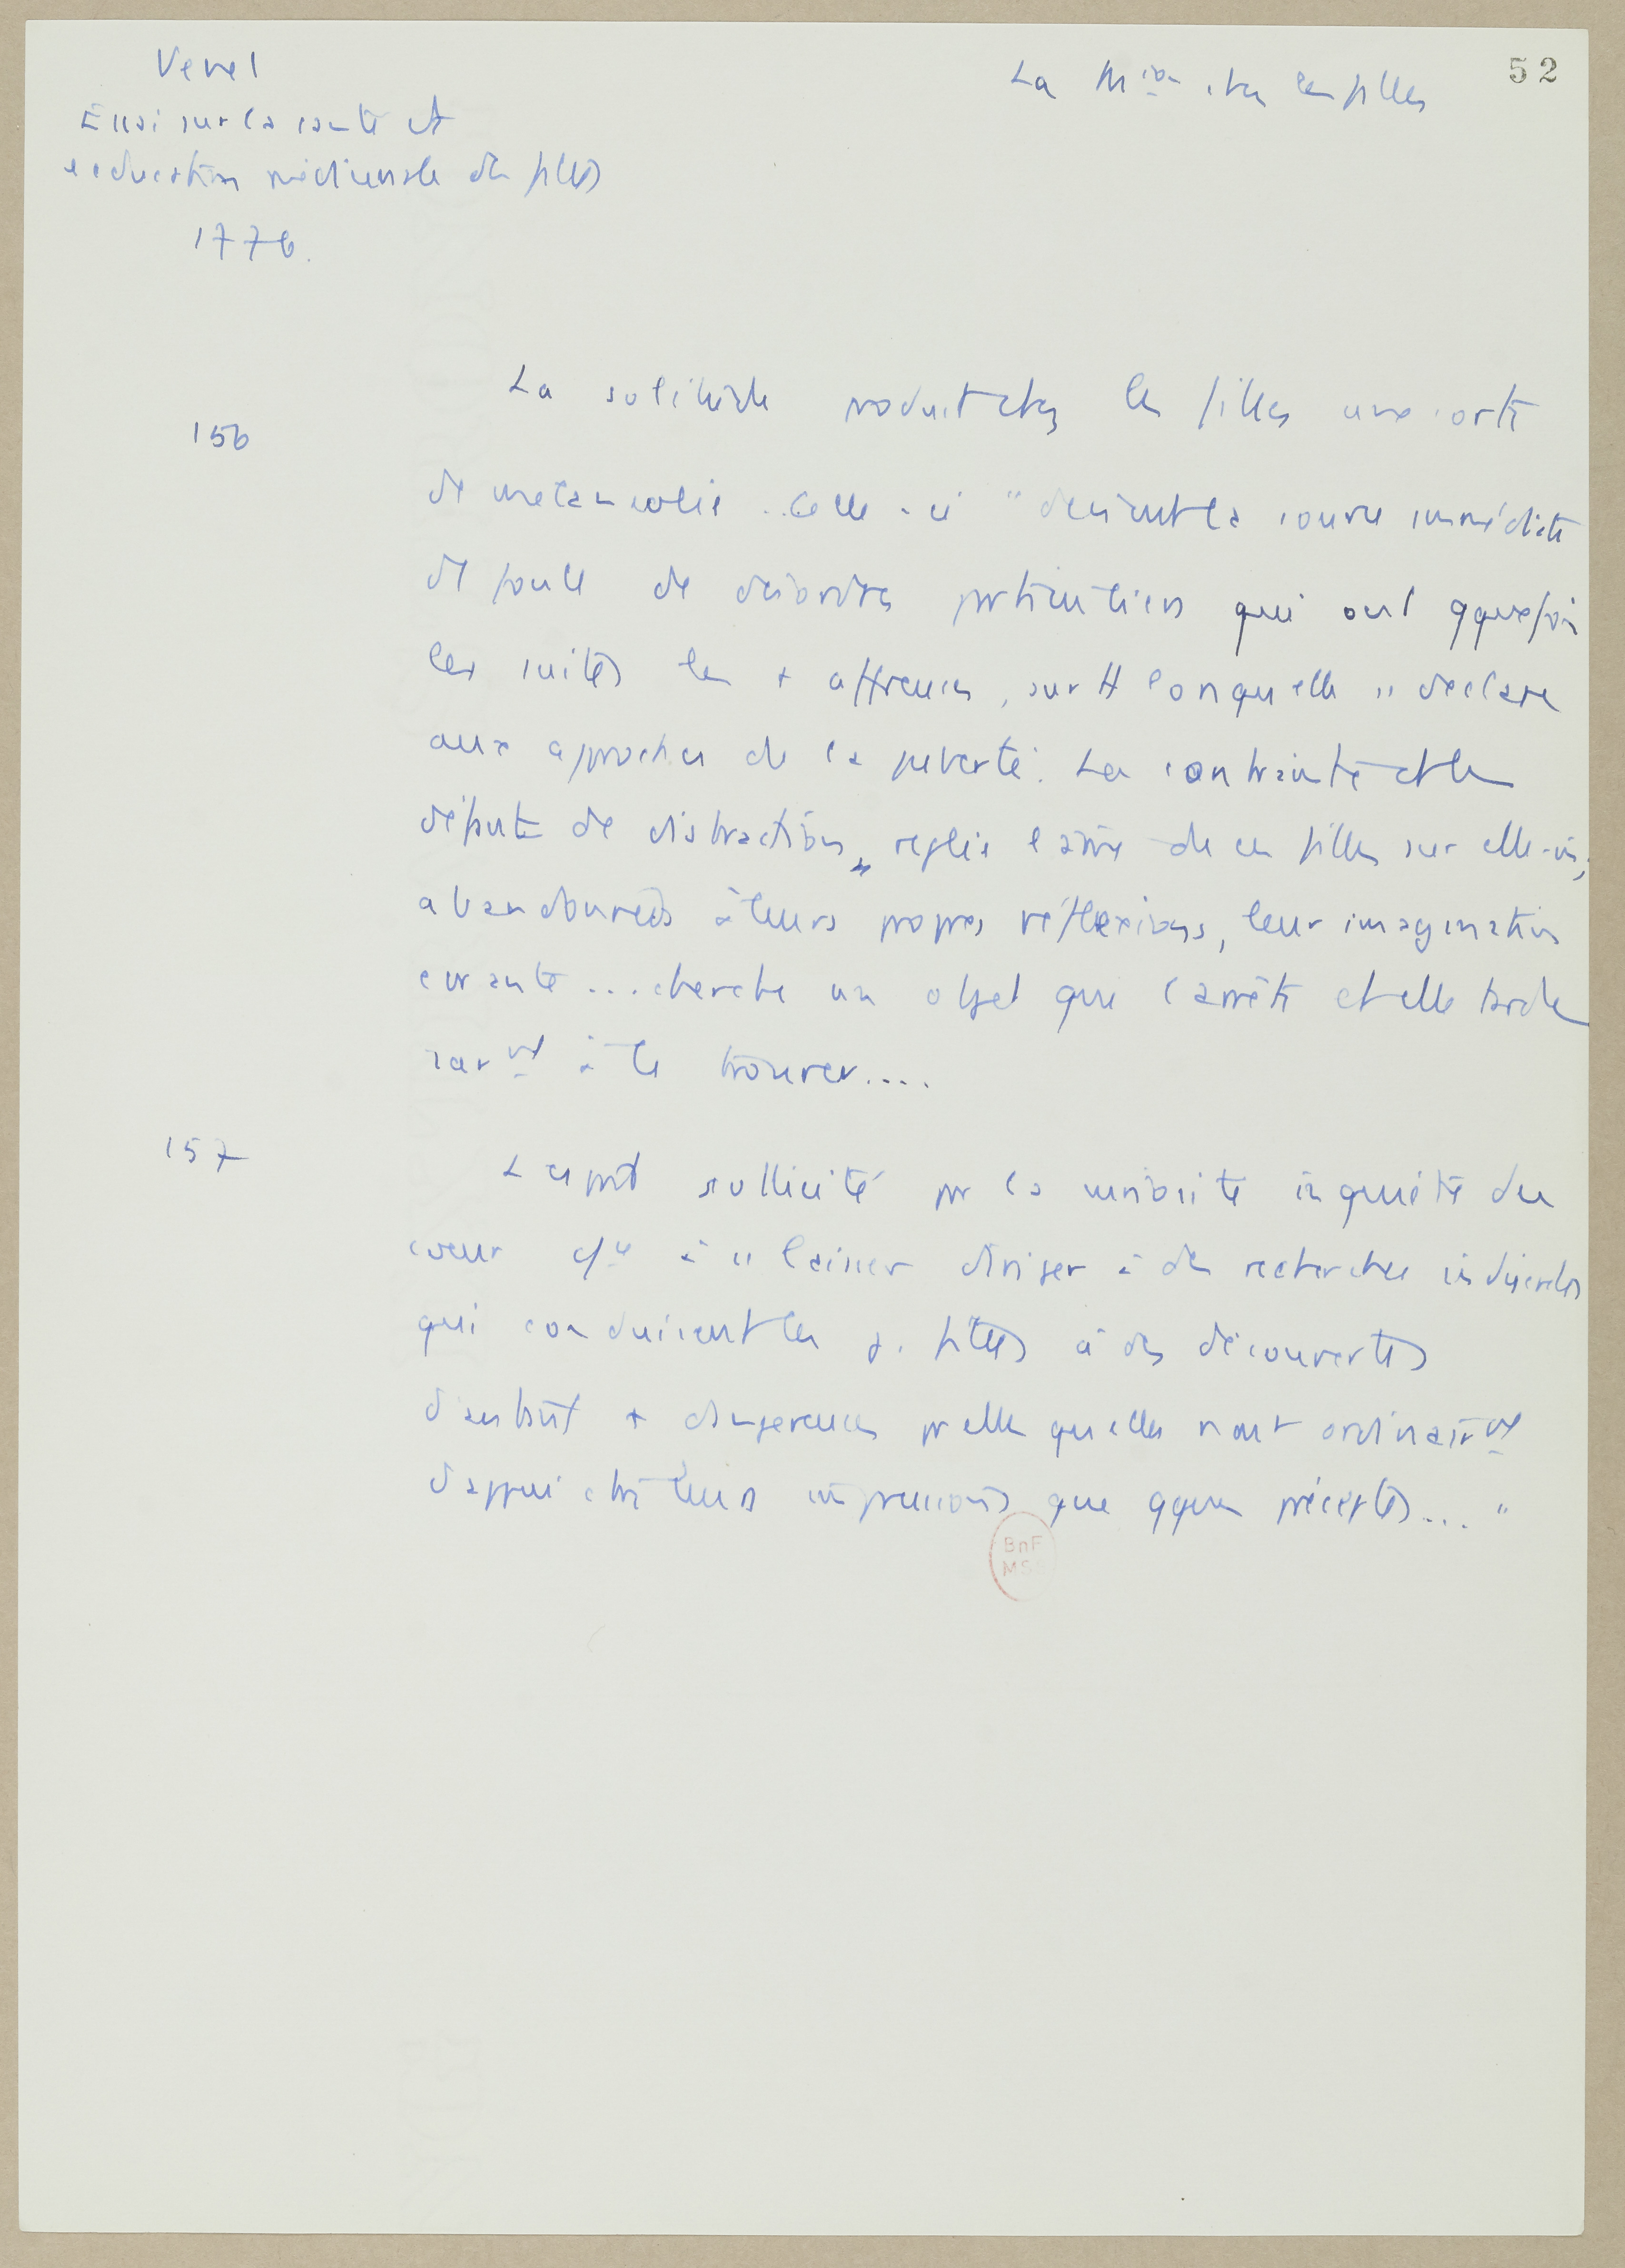 Venel
Essai sur la santé et
l'education médicinale des filles
1776.
La M^ion chez les filles
52
156
La solitude produit chez les filles une sorte
de melancolie. Celle-ci "devient la source immédiate
de foule de désordres particuliers qui ont qquefois
les suites les + affreuses, surtt lorsqu'elle se declare
aux approches de la puberté. La contrainte et le
défaut de distractions, replie l'âme de ces filles sur elle-m;
abandonnées à leurs propres réflexions, leur imagination
errante ... cherche un objet qui l'arrête et elle tarde
rar^vt à le trouver....
157
L'esprit sollicité pr la curiosité inquiète du
coeur à se laisser diriger à des recherches indiscretes
qui conduisent les j. filles à des découvertes
d'autant + dangereuses pr elles qu'elles n'ont ordinair^vt
d'appui ctre leurs impressions que qques préceptes... "
BnF
MSS